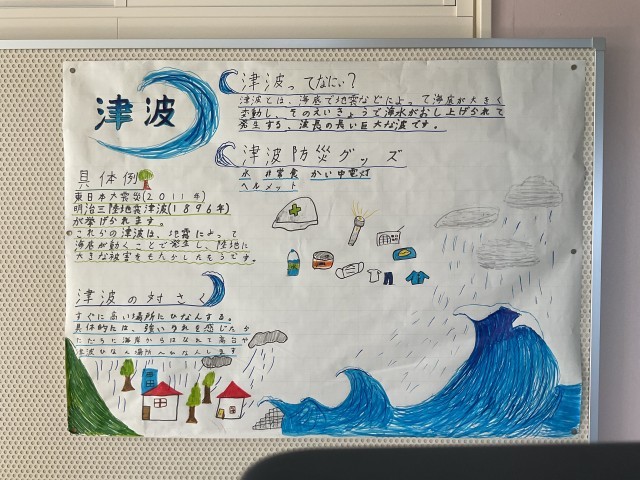 津波
津波ってなにぃ?
津波とは、海底で地震などによって海底が大きく
変動し、そのえいきょうで海水がおし上げられて
発生する、波長の長い巨大な波です。
津波防災グッズ
水 非常食 かい中電灯
ヘルメット
具体例
東日本大震災(2011年)
明治三陸地震津波(1896年)
が挙げられます。
これらの津波は、地震によって
海底が動くことで発生し、陸地に
大きな被害をもたらしたそうです。
津波の対さく
すぐに高い場所にひなんする。
具体的には、強いゆれを感じたら
ただちに海岸からはなれて高台や
津波ひなん場所へひなんします